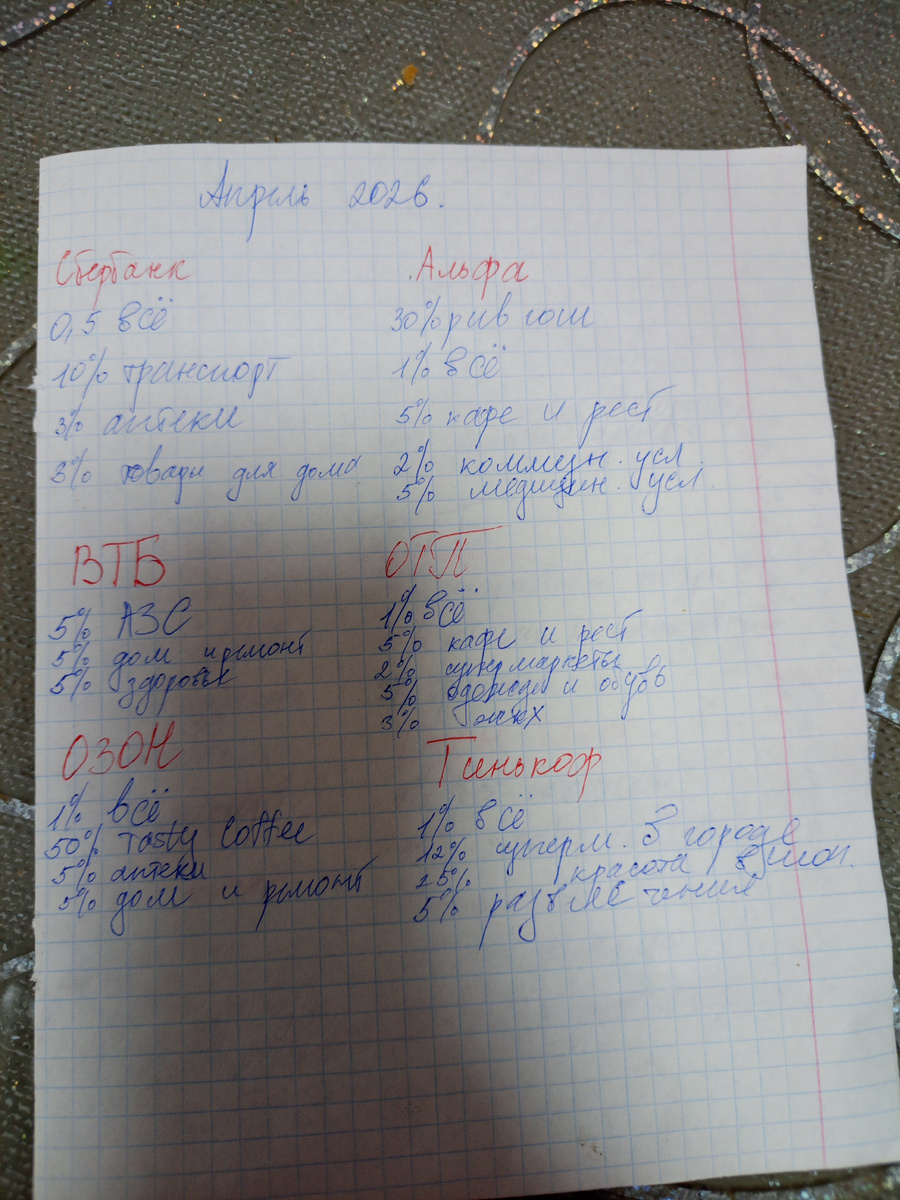 Апрель 2026.
Сбербанк
0,5 всё
10% транспорт
3% аптеки
3% товары для дома
Альфа
30% рив гош
1% всё
5% кафе и рест
2% коммун. усл.
5% медицин. усл.
ВТБ
5% АЗС
5% дом и ремонт
5% здоровье
ОТП
1% всё
5% кафе и рест
2% супермаркеты
5% одежда и обувь
3% жкх
ОЗОН
1% всё
50% Tasty Coffee
5% аптеки
5% дом и ремонт
Тинькоф
1% всё
12% суперм. В городе
25% красота в шоп.
5% развлечения